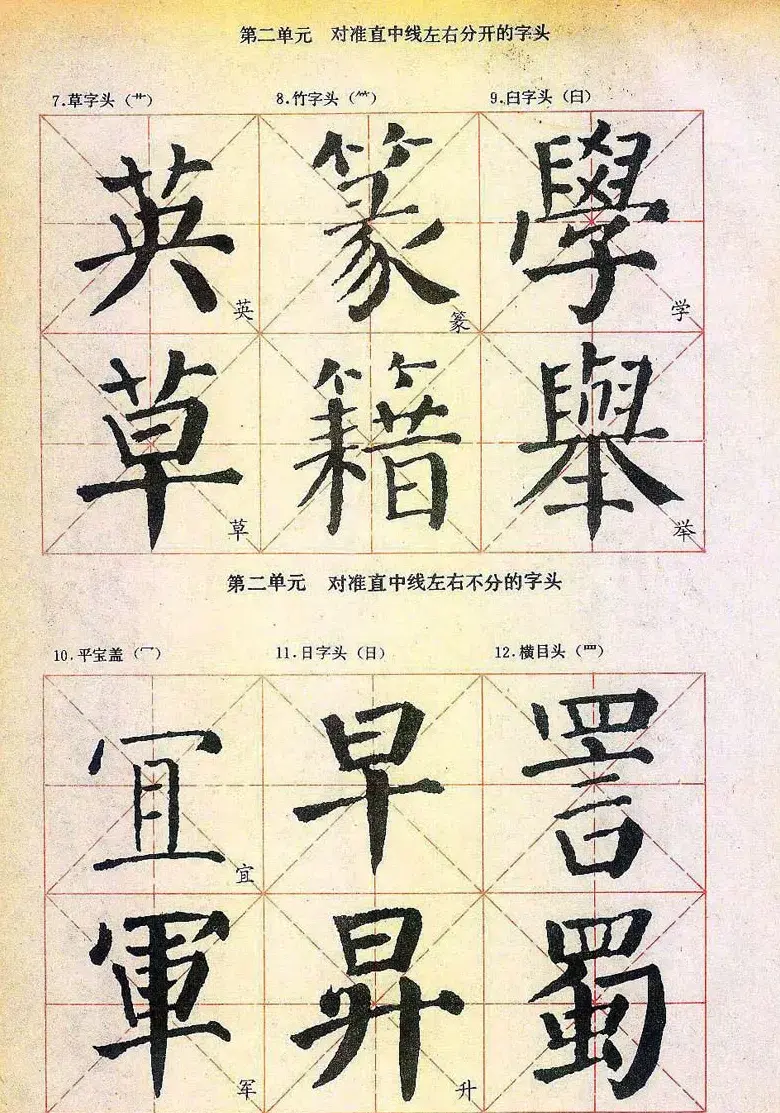 第二单元 对准直中线左右分开的字头
7.草字头（艹） 8.竹字头（⺮） 9.臼字头（臼）
英 篆 學
英 篆 学
草 籍 舉
草 举
第二单元 对准直中线左右不分的字头
10.平宝盖（冖） 11.日字头（日） 12.横目头（罒）
冝 早 詈
宜
軍 昇 蜀
军 升